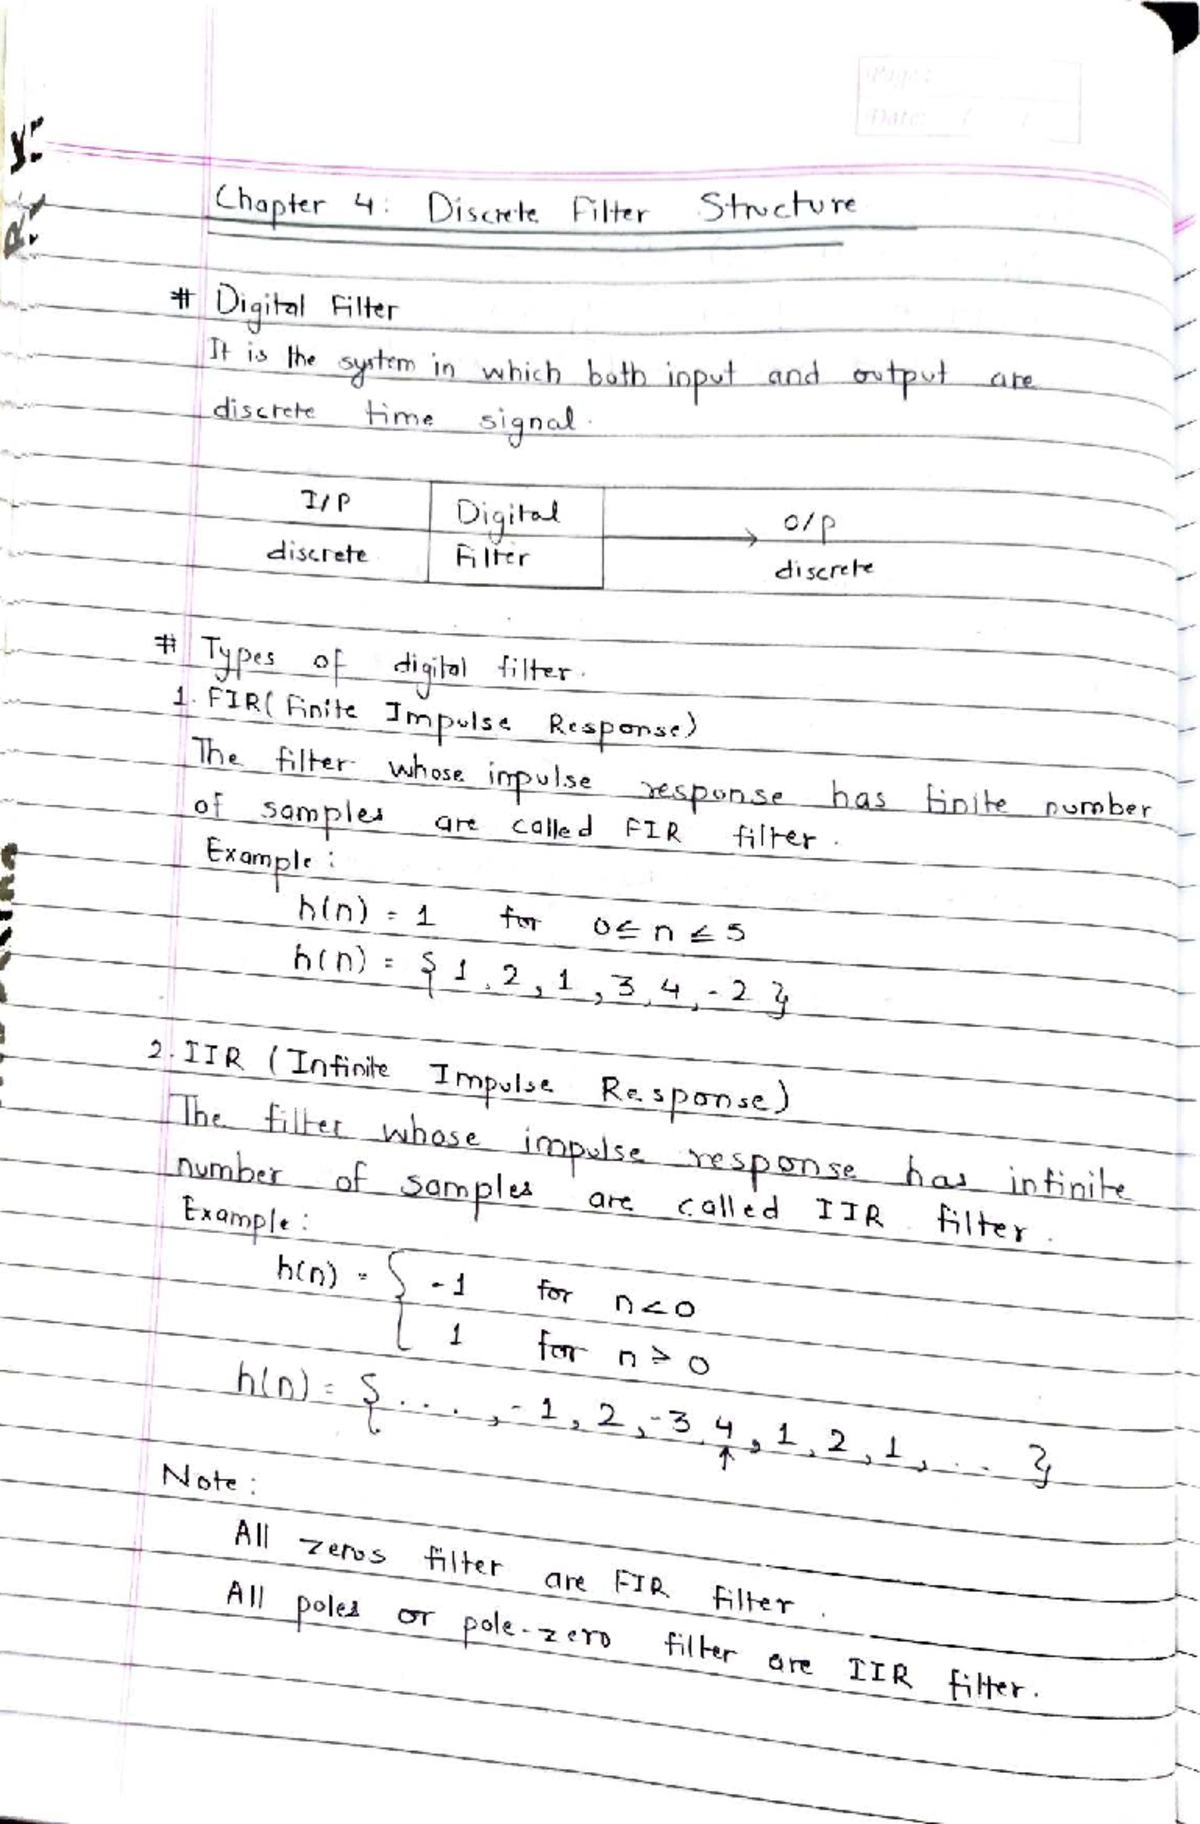 Page:
Date: / /
Chapter 4: Discrete Filter Structure
# Digital Filter
It is the system in which both input and output are
discrete time signal.
I/P
discrete
Digital
Filter
O/P
discrete
# Types of digital filter.
1. FIR( Finite Impulse Response)
The filter whose impulse response has finite number
of samples are called FIR filter.
Example:
h(n) = 1 for 0≤ n ≤ 5
h(n) = { 1, 2, 1, 3, 4, -2 }
2. IIR (Infinite Impulse Response)
The filter whose impulse response has infinite
number of samples are called IIR filter.
Example:
h(n) = { -1 for n<0
1 for n ≥ 0
h(n) = { ...., -1, 2, -3, 4, 1, 2, 1, ... }
↑
Note:
All zeros filter are FIR filter.
All poles or pole-zero filter are IIR filter.